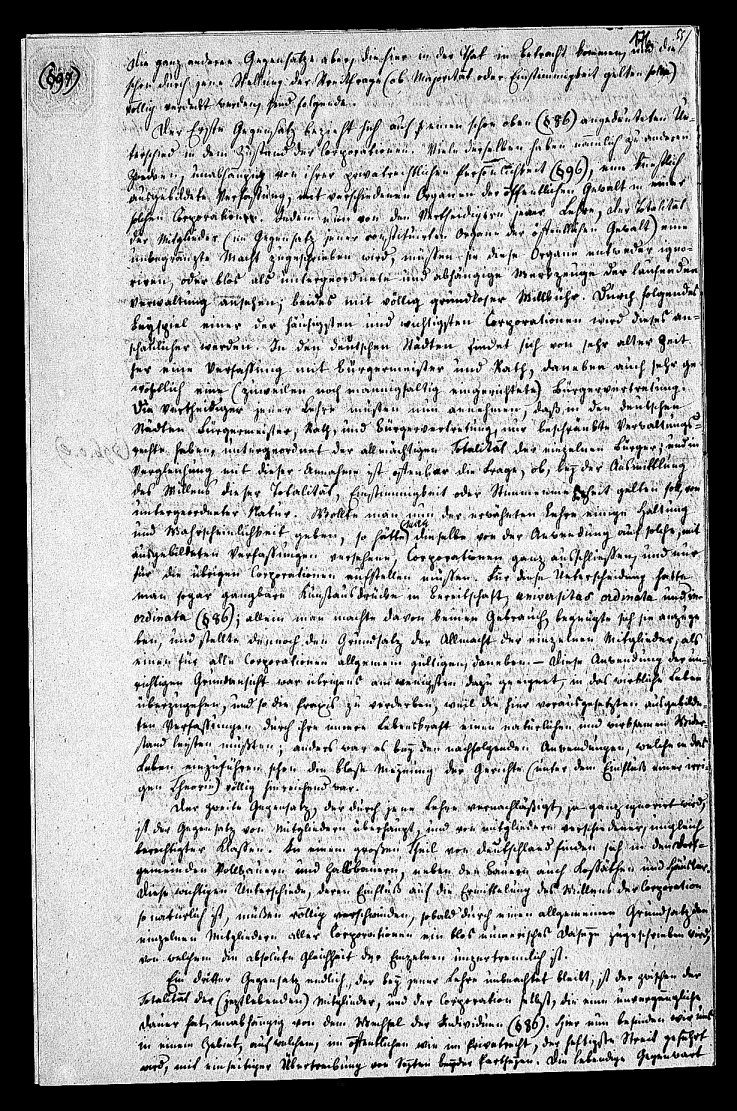 176 55/
(§97)
Die ganz anderen Gegensätze aber, die hier in der That in Betracht kommen, und die
schon durch jene Stellung der Streitfrage (ob Majorität oder Einstimmigkeit gelten solle)
völlig verdeckt werden, sind folgende.
Der Erste Gegensatz bezieht sich auf einen schon oben (§86) angedeuteten Un-
terschied in dem Zustand der Corporationen. Viele derselben haben nämlich zu anderen
Zwecken, unabhängig von ihrer privatrechtlichen Persönlichkeit (§96), eine künstlich
ausgebildete Verfassung, mit verschiedenen Organen der öffentlichen Gewalt in einer
solchen Corporation. Indem nun von den Vertheidigern jener Lehre, der Totalität
der Mitglieder (im Gegensatz jener constituirten Organe der öffentlichen Gewalt) eine
unbegränzte Macht zugeschrieben wird, müssen sie diese Organe entweder igno-
riren, oder blos als untergeordnete und abhängige Werkzeuge der laufenden
Verwaltung ansehen; beides mit völlig grundloser Willkühr. Durch folgendes
Beyspiel einer der häufigsten und wichtigsten Corporationen wird dieses an-
schaulicher werden. In den deutschen Städten findet sich von sehr alter Zeit
her eine Verfassung mit Bürgermeister und Rath, daneben auch sehr ge-
wöhnlich eine (zuweilen noch mannigfaltig eingerichtete) Bürgervertretung.
Die Vertheidiger jener Lehre müssen nun annehmen, daß in den deutschen
Städten Bürgermeister, Rath, und Bürgervertretung, nur beschränkte Verwaltungs-
rechte haben, untergeordnet der allmächtigen Totalität der einzelnen Bürger; und in
Vergleichung mit dieser Annahme ist offenbar die Frage, ob, bey der Ausmittlung
des Willens dieser Totalität, Einstimmigkeit oder Stimmenmehrheit gelten soll, von
untergeordneter Natur. Wollte man nun der erwähnten Lehre einige Haltung
und Wahrscheinlichkeit geben, so hätte man dieselbe von der Anwendung auf solche, mit
ausgebildeten Verfassungen versehene, Corporationen ganz ausschließen, und nur
für die übrigen Corporationen aufstellen müssen. Für diese Unterscheidung hatte
man sogar gangbare Kunstausdrücke in Bereitschaft, universitas ordinata und in-
ordinata (§86); allein man machte davon keinen Gebrauch, begnügte sich sie anzuge-
ben, und stellte dennoch den Grundsatz der Allmacht der einzelnen Mitglieder, als
einen für alle Corporationen allgemein gültigen, daneben. – Diese Anwendung der un-
richtigen Grundansicht war übrigens am wenigsten dazu geeignet, in das wirkliche Leben
überzugehen, und so die Praxis zu verderben, weil die hier vorausgesetzten ausgebilde-
ten Verfassungen durch ihre innere Lebenskraft einen natürlichen und wirksamen Wider-
stand leisten mußten; anders war es bey den nachfolgenden Anwendungen, welche in das
Leben einzuführen schon die bloße Meynung der Gerichte (unter dem Einfluß einer irri-
gen Theorie) völlig hinreichend war.
Der zweite Gegensatz, der durch jene Lehre vernachlässigt, ja ganz ignorirt wird,
ist der Gegensatz von Mitgliedern überhaupt, und von Mitgliedern verschiedener, ungleich
berechtigter Klassen. In einem großen Theil von Deutschland finden sich in den Dorf-
gemeinden Vollbauern und Halbbauern, neben den Bauern auch Kossäthen und Häusler.
Diese wichtigen Unterschiede, deren Einfluß auf die Ermittelung des Willens der Corporation
so natürlich ist, müßen völlig verschwinden, sobald durch einen allgemeinen Grundsatz den
einzelnen Mitgliedern aller Corporationen ein blos numerisches Daseyn zugeschrieben wird,
von welchem die absolute Gleichheit der Einzelnen unzertrennlich ist.
Ein dritter Gegensatz endlich, der bey jener Lehre unbeachtet bleibt, ist der zwischen der
Totalität der (jetztlebenden) Mitglieder, und der Corporation selbst, die eine unvergängliche
Dauer hat, unabhängig von dem Wechsel der Individuen (§86). Hier nun befinden wir uns
in einem Gebiet, auf welchem, im öffentlichen wie im Privatrecht, der heftigste Streit geführt
wird, mit einseitiger Übertreibung von Seyten beyder Partheyen. Die lebendige Gegenwart